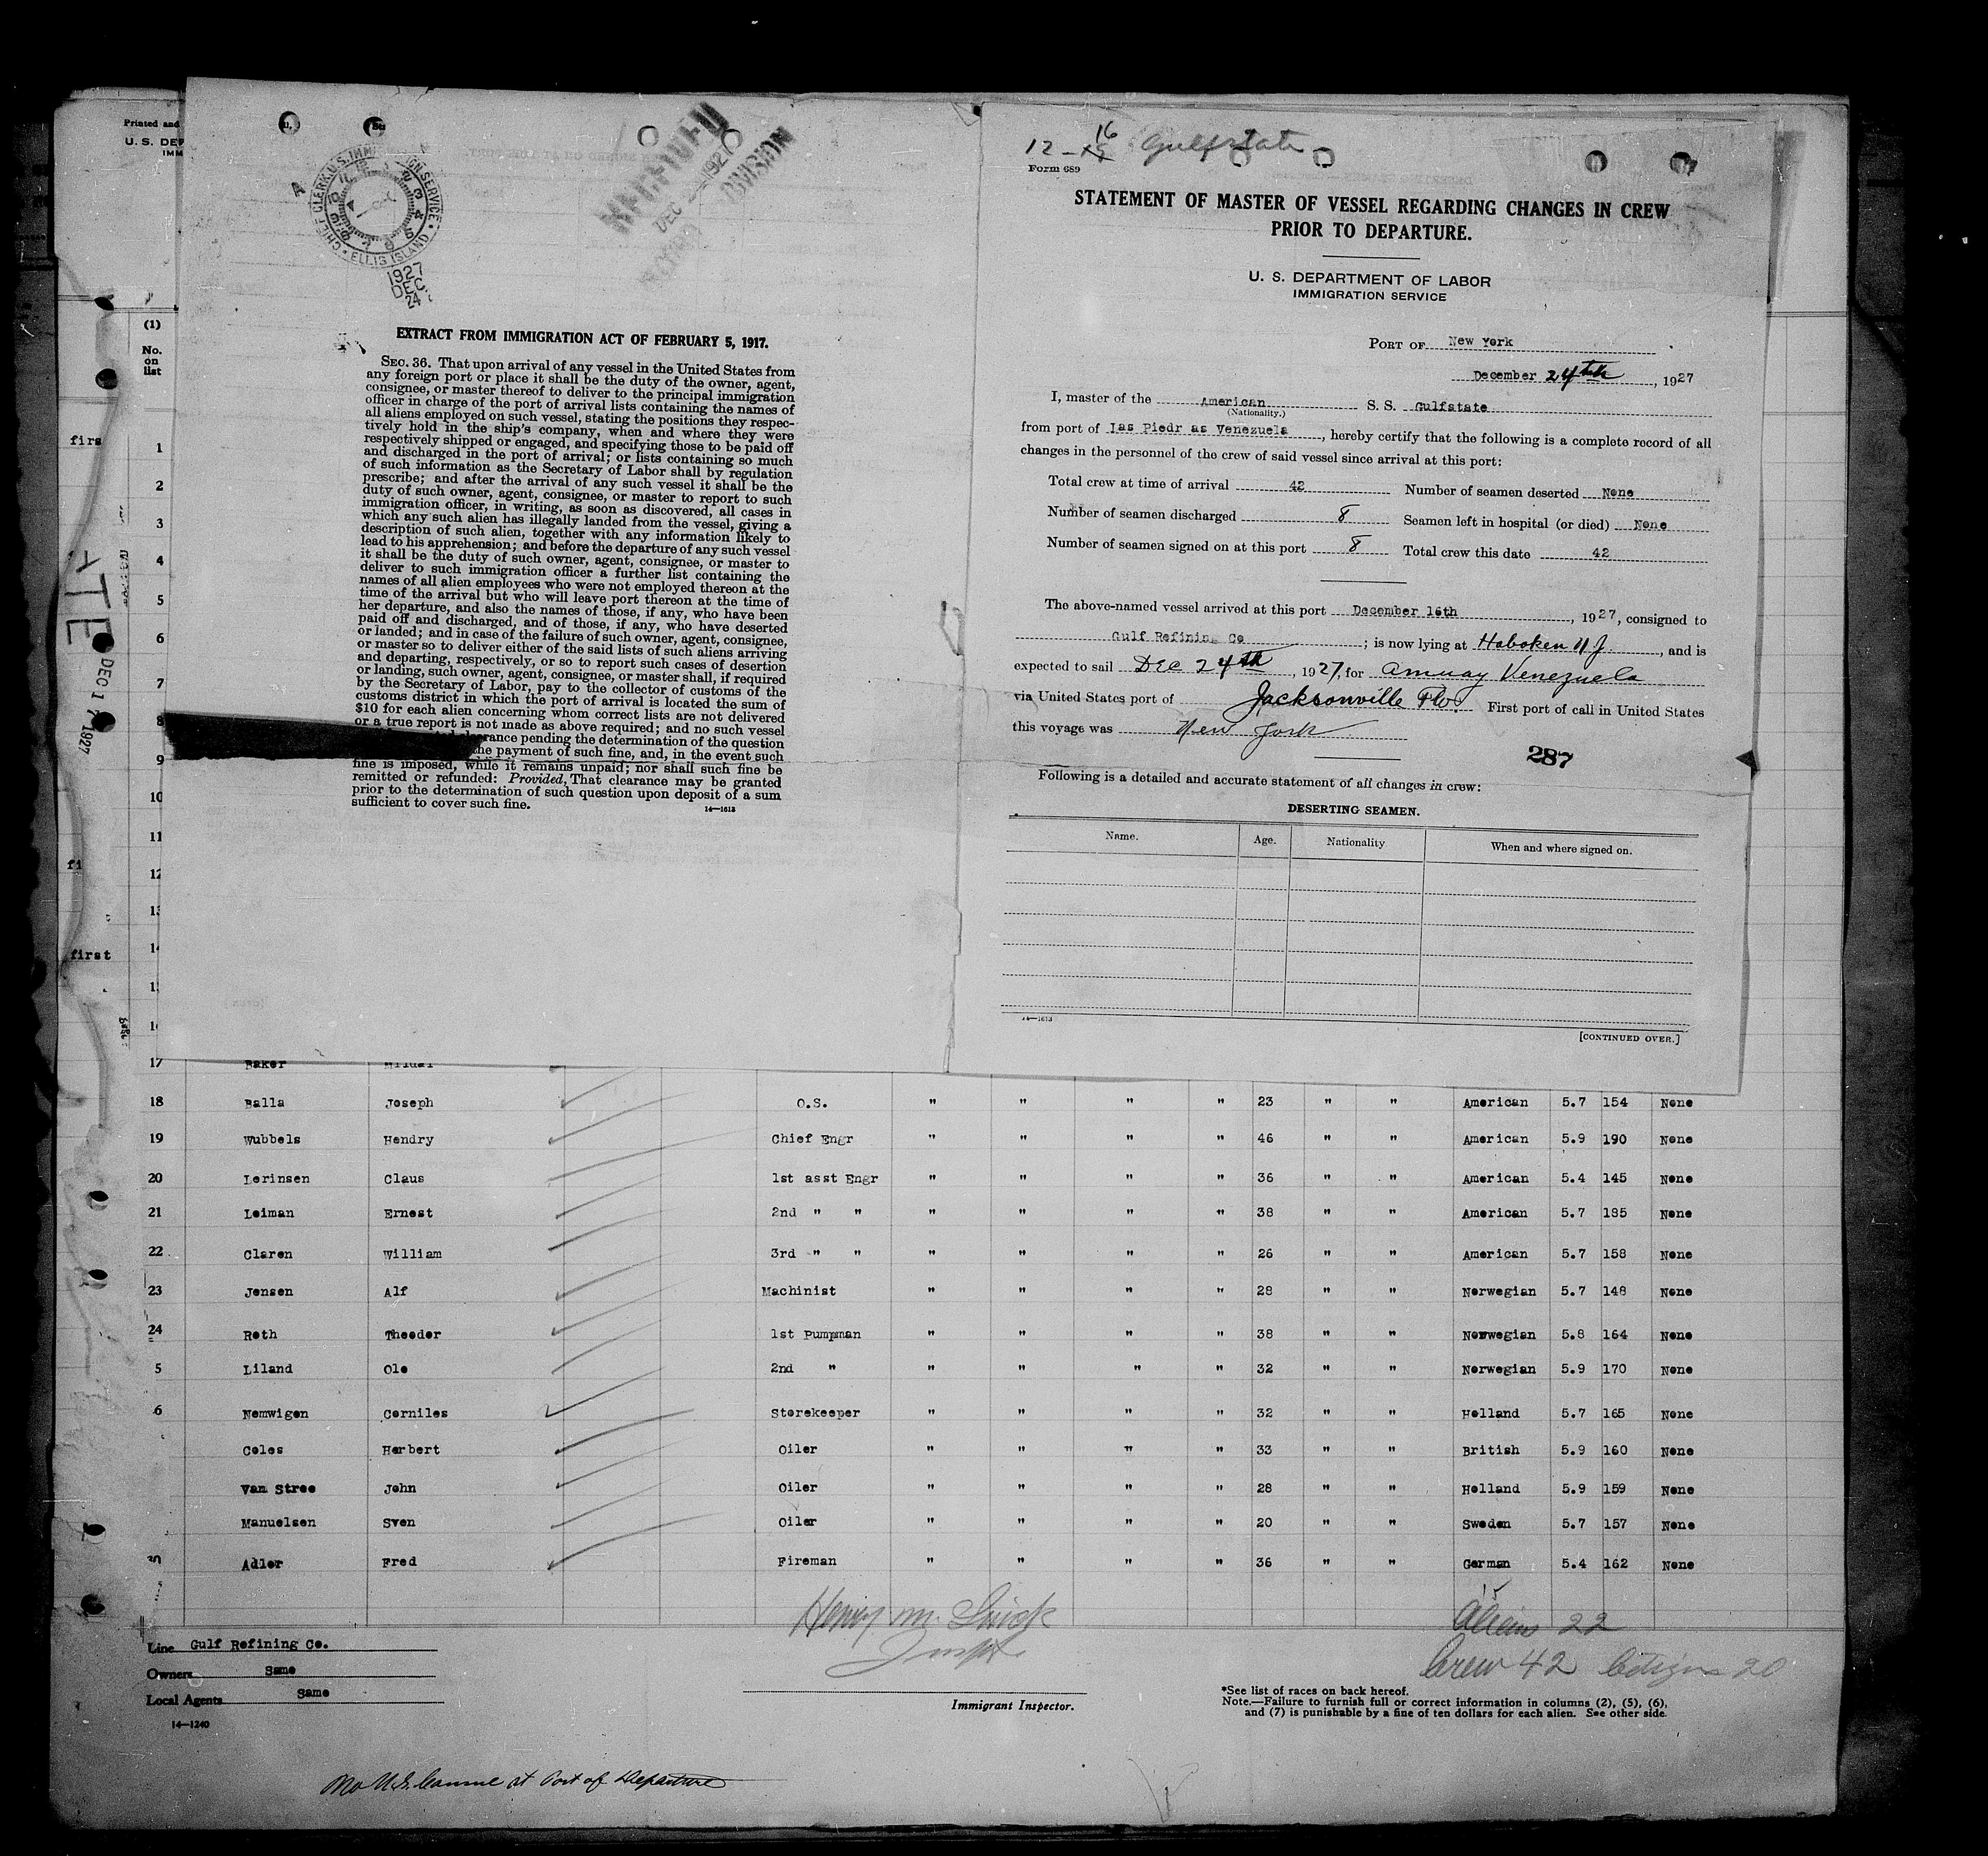 Printed and
U. S. DEP
IMM
(1)
No.
on
list
firs
1
2
3
4
5
6
7
8
9
10
11
12
fi
first
DEC 17 1927
CHIEF CLERK U.S. IMMIGRATION SERVICE
ELLIS ISLAND
1927
DEC
24
DEC 1927
DIVISION
EXTRACT FROM IMMIGRATION ACT OF FEBRUARY 5, 1917.
SEC. 36. That upon arrival of any vessel in the United States from
any foreign port or place it shall be the duty of the owner, agent,
consignee, or master thereof to deliver to the principal immigration
officer in charge of the port of arrival lists containing the names of
all aliens employed on such vessel, stating the positions they respec-
tively hold in the ship's company, when and where they were
respectively shipped or engaged, and specifying those to be paid off
and discharged in the port of arrival; or lists containing so much
of such information as the Secretary of Labor shall by regulation
prescribe; and after the arrival of any such vessel it shall be the
duty of such owner, agent, consignee, or master to report to such
immigration officer, in writing, as soon as discovered, all cases in
which any such alien has illegally landed from the vessel, giving a
description of such alien, together with any information likely to
lead to his apprehension; and before the departure of any such vessel
it shall be the duty of such owner, agent, consignee, or master to
deliver to such immigration officer a further list containing the
names of all alien employees who were not employed thereon at the
time of the arrival but who will leave port thereon at the time of
her departure, and also the names of those, if any, who have been
paid off and discharged, and of those, if any, who have deserted
or landed; and in case of the failure of such owner, agent, consignee,
or master so to deliver either of the said lists of such aliens arriving
and departing, respectively, or so to report such cases of desertion
or landing, such owner, agent, consignee, or master shall, if required
by the Secretary of Labor, pay to the collector of customs of the
customs district in which the port of arrival is located the sum of
$10 for each alien concerning whom correct lists are not delivered
or a true report is not made as above required; and no such vessel
rance pending the determination of the question
the payment of such fine, and, in the event such
fine is imposed, while it remains unpaid; nor shall such fine be
remitted or refunded: Provided, That clearance may be granted
prior to the determination of such question upon deposit of a sum
sufficient to cover such fine.
14—1613
12-16 Gulfstate
Form 689
STATEMENT OF MASTER OF VESSEL REGARDING CHANGES IN CREW
PRIOR TO DEPARTURE.
U. S. DEPARTMENT OF LABOR
IMMIGRATION SERVICE
PORT OF New York
December 24th, 1927
I, master of the American S. S. Gulfstate
(Nationality.)
from port of Las Piedr as Venezuela, hereby certify that the following is a complete record of all
changes in the personnel of the crew of said vessel since arrival at this port:
Total crew at time of arrival 42 Number of seamen deserted None
Number of seamen discharged 8 Seamen left in hospital (or died) None
Number of seamen signed on at this port 8 Total crew this date 42
The above-named vessel arrived at this port December 16th, 1927, consigned to
Gulf Refining Co; is now lying at Hoboken N J., and is
expected to sail DEC 24th, 1927, for Amuay Venezuela
via United States port of Jacksonville Fla. First port of call in United States
this voyage was New York
287
Following is a detailed and accurate statement of all changes in crew:
DESERTING SEAMEN.
Name. Age. Nationality When and where signed on.
14—1613
[CONTINUED OVER.]
17 Baker
18 Balla Joseph O.S. " " " " 23 " " American 5.7 154 None
19 Wubbels Hendry Chief Engr " " " " 46 " " American 5.9 190 None
20 Lorinsen Claus 1st asst Engr " " " " 36 " " American 5.4 145 None
21 Leiman Ernest 2nd " " " " " " 38 " " American 5.7 185 None
22 Claren William 3rd " " " " " " 26 " " American 5.7 158 None
23 Jensen Alf Machinist " " " " 28 " " Norwegian 5.7 148 None
24 Roth Theodor 1st Pumpman " " " " 38 " " Norwegian 5.8 164 None
5 Liland Ole 2nd " " " " " 32 " " Norwegian 5.9 170 None
6 Nomwigen Corniles Storekeeper " " " " 32 " " Holland 5.7 165 None
Coles Herbert Oiler " " " " 33 " " British 5.9 160 None
Van Stree John Oiler " " " " 28 " " Holland 5.9 159 None
Manuelsen Sven Oiler " " " " 20 " " Sweden 5.7 157 None
30 Adler Fred Fireman " " " " 36 " " German 5.4 162 None
15
Henry M.
Aliens 22
Crew 42 Citizens 20
Line Gulf Refining Co.
Owners Same
Local Agents Same
14—1240
Immigrant Inspector.
*See list of races on back hereof.
Note.—Failure to furnish full or correct information in columns (2), (5), (6),
and (7) is punishable by a fine of ten dollars for each alien. See other side.
at Port of Departure